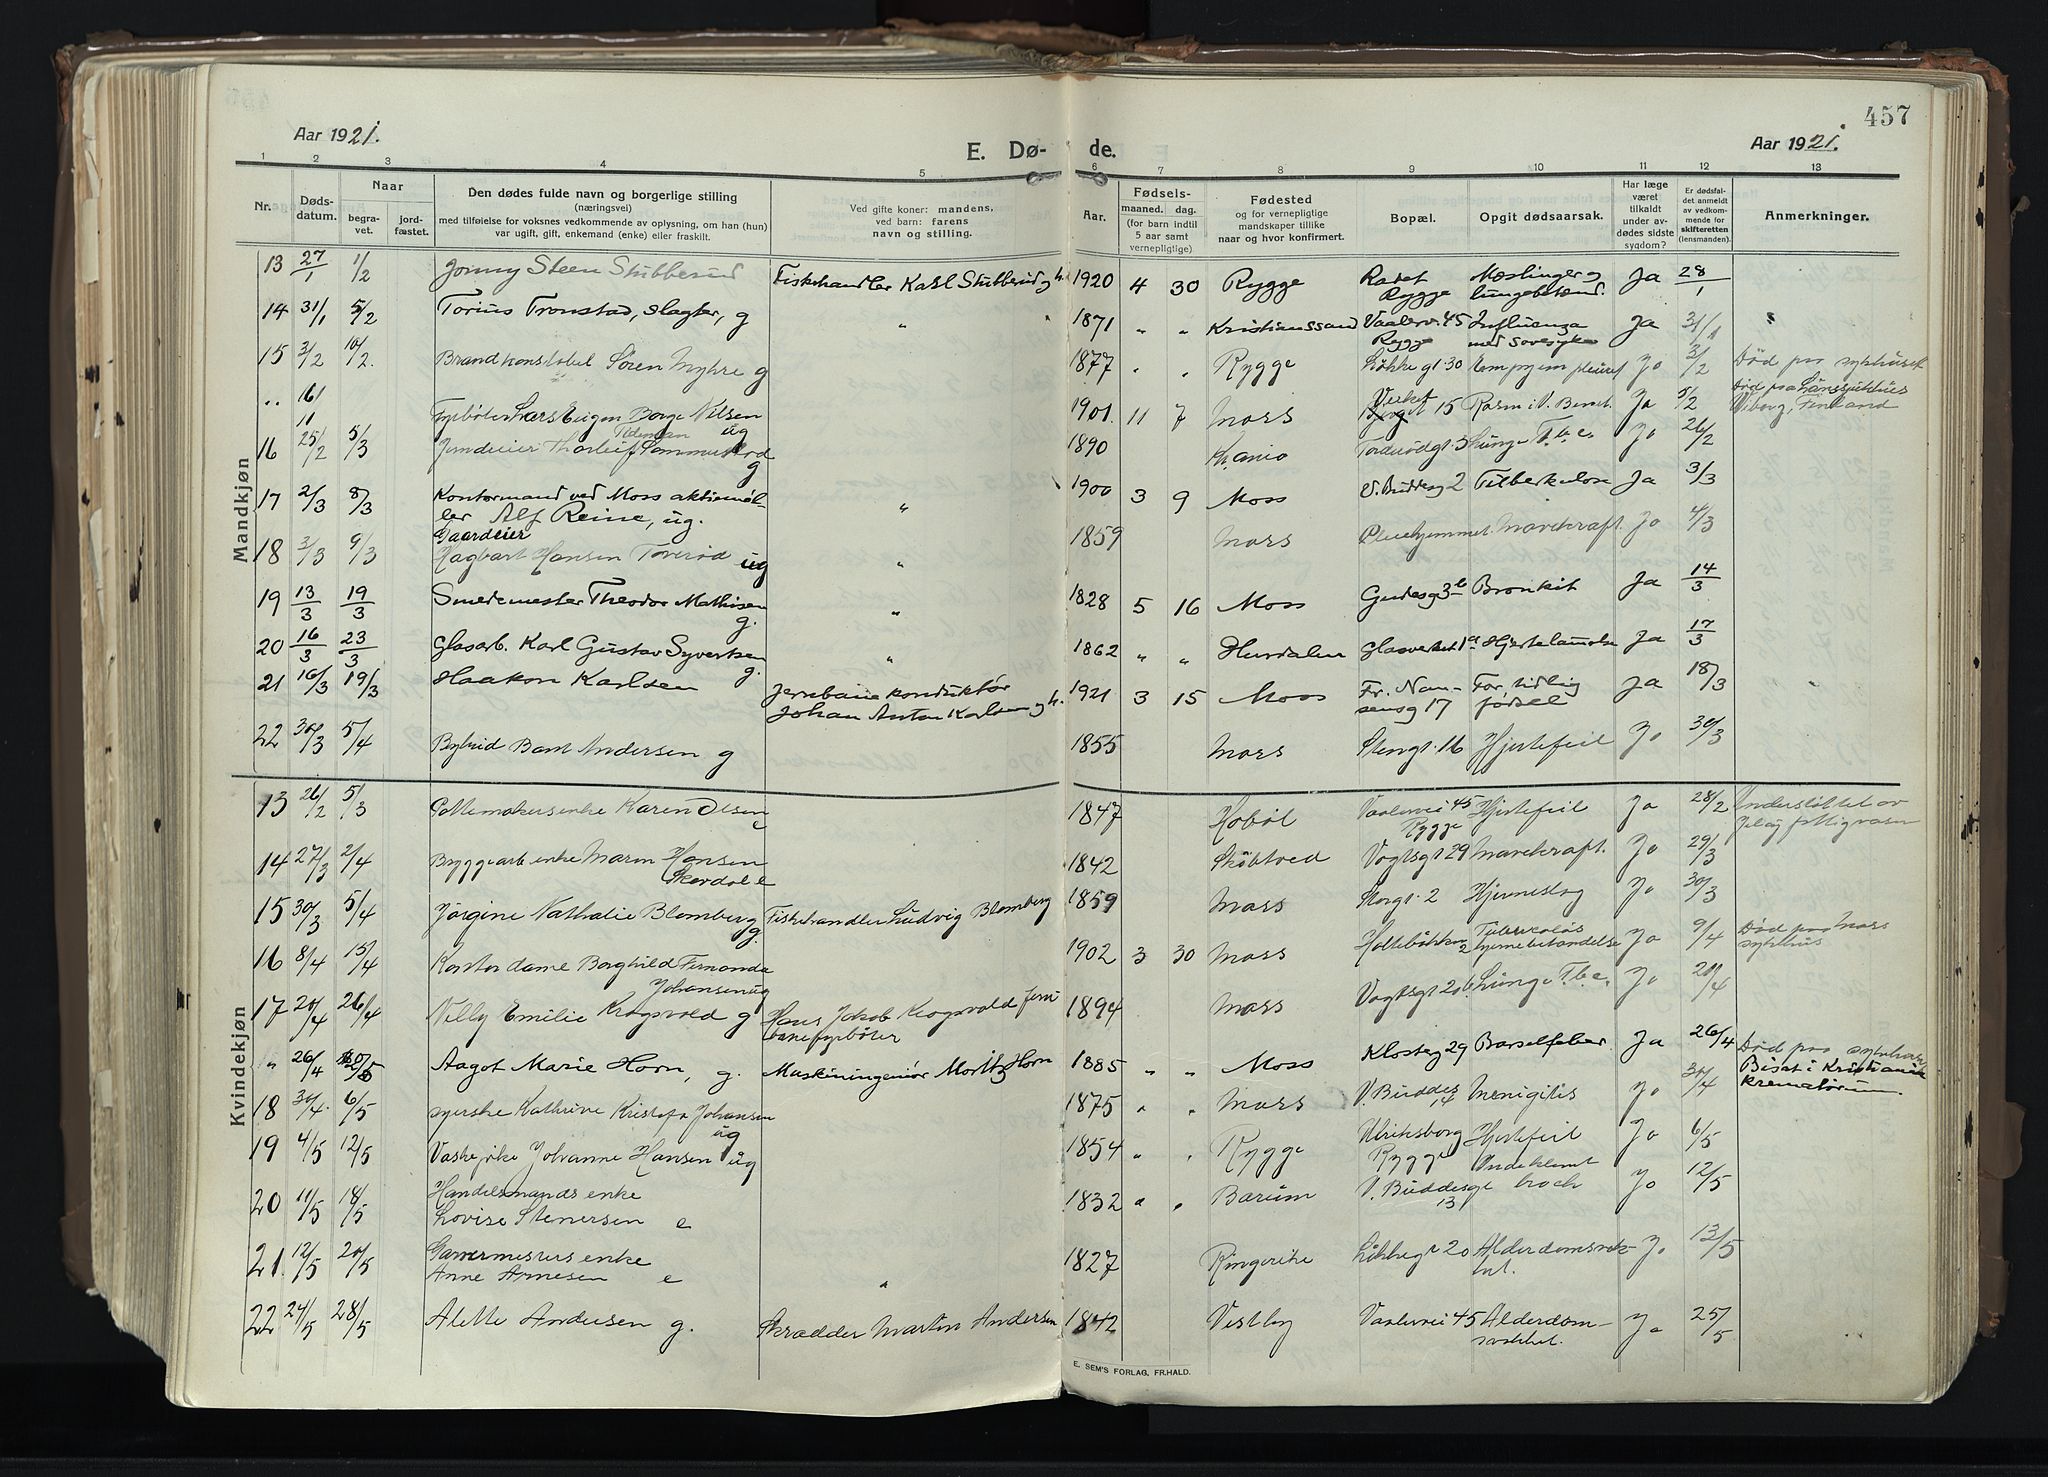 457
Aar 1921.
E. Dø-
de.
Aar 1921.
1 2 3 4 5 6 7 8 9 10 11 12 13
Nr.
Døds-
datum.
Naar
begra-
vet.
jord-
fæstet.
Den dødes fulde navn og borgerlige stilling
(næringsvei)
med tilføielse for voksnes vedkommende av oplysning, om han (hun)
var ugift, gift, enkemand (enke) eller fraskilt.
Ved gifte koner: mandens,
ved barn: farens
navn og stilling.
Aar.
Fødsels-
maaned. dag.
(for barn indtil
5 aar samt
vernepligtige)
Fødested
og for vernepligtige
mandskaper tillike
naar og hvor konfirmert.
Bopæl.
Opgit dødsaarsak.
Har læge
været
tilkaldt
under av-
dødes sidste
sygdom?
Er dødsfal-
det anmeldt
av vedkom-
mende for
skifteretten
(lensmanden).
Anmerkninger.
Mandkjøn
13 27/1 1/2 Jonny Steen Stubberud Fiskehandler Karl Stubberud g h. 1920 4 30 Rygge Radet Mæslinger og Ja 28/1
Rygge lungebetænd.
14 31/1 5/2 Torius Tronstad, slagter, g " 1871 " " Kristianssand Vaalerv. 45 Influenza Ja 31/1
Rygge med sovesyke
15 3/2 10/2. Brandkonstabel Søren Myhre g 1877 " " Rygge Løkkegt. 30 Empyem pleurae Ja 3/2 Død paa sykehuset
Fyrbøter Lars Eugen Borge Nilsen ug 1901. 11 7 Moss Verket 15 Ja 5/2 Død paa Länssjukhus
Viborg, Finland
16 25/2 5/3 Thorleif g 1890 Kr.ania Lunge T.b.c. Ja 26/2
17 2/3 8/3 Kontormand ved Moss aktiemøl- " 1900 3 9 Moss V. Buddesg 2 Tuberkulose Ja 3/3
ler Alf Reine, ug.
Gaardeier
18 3/3 9/3 Hagbart Hansen Tverød ug " 1859 Moss Pleiehjemmet Mavekræft. Ja 4/3
19 13/3 19/3 Smedemester Theodor Mathisen g. " 1828 5 16 Moss Gudesg 3b Bronkit Ja 14/3
20 16/3 23/3 Glasarb. Karl Gustav Syvertsen g. " 1862 " " Hurdalen Glasverket 1a Hjertelammelse Ja 17/3
21 16/3 19/3 Haakon Karlsen Jernbanekonduktør 1921 3 15 Moss Fr. Nan- For tidlig Ja 18/3
Johan Anton Karlsen g h. sensg 17 fødsel
22 30/3 5/4 Bybud Bernt Andersen g 1855 Moss Stengt. 16 Hjertefeil Ja 30/3
Kvindekjøn
13 26/2 5/3 Pottemakersenke Karen Olsen e 1847 Hobøl Vaalervei 45 Hjertefeil Ja 28/2 Understøttet av
Rygge Jeløy fattigvæsen
14 27/3 2/4 Bryggearb. enke Maren Hansen 1842 Skibtved Vogtsgt 29 Mavekræft. Ja 29/3
Skerdal e
15 30/3 5/4 Jørgine Nathalie Blomberg g. Fiskehandler Ludvig Blomberg 1859 Moss Storgt. 2 Hjerneslag Ja 30/3
16 8/4 13/4 Kontordame Borghild Fernanda 1902 3 30 Moss Holtebakken 2 Tuberkuløs Ja 9/4 Død paa Moss
Johansen ug hjernebetændelse sykehus
17 20/4 26/4 Nelly Emilie Krogsvold g Hans Jakob Krogsvold jern 1894 Moss Vogtsgt 20b Lunge T.b.c. Ja 20/4
banefyrbøter
" 26/4 20/5 Aagot Marie Horn, g. Maskiningeniør Moritz Horn 1885 " " Moss Klosterg 29 Barselfeber Ja 26/4 Død paa sykehuset
Bisat i Kristiania
krematorium.
18 30/4. 6/5 syerske Kathrine Kristofa Johansen ug 1875 " " Moss V. Buddesg 14 Menigitis Ja 30/4
19 4/5 12/5 Vaskepike Johanne Hansen ug 1854 " " Rygge Ulriksborg Hjertefeil Ja 6/5
Rygge
20 11/5 18/5 Handelsmands enke 1832 " " Bærum V. Buddesgt 13 Indeklemt brock Ja 12/5
Lovise Stenersen e
21. 12/5 20/5 Garvermesters enke 1827 Ringerike Løkkegt 20 Alderdomsvak- Ja 13/5
Anne Arnesen e " het.
22 24/5 28/5 Alette Andersen g. Skrædder Martin Andersen 1842 Vestby Vaalervei 45 Alderdom- Ja 25/5
svakhet.
E. SEM'S FORLAG, FR.HALD.